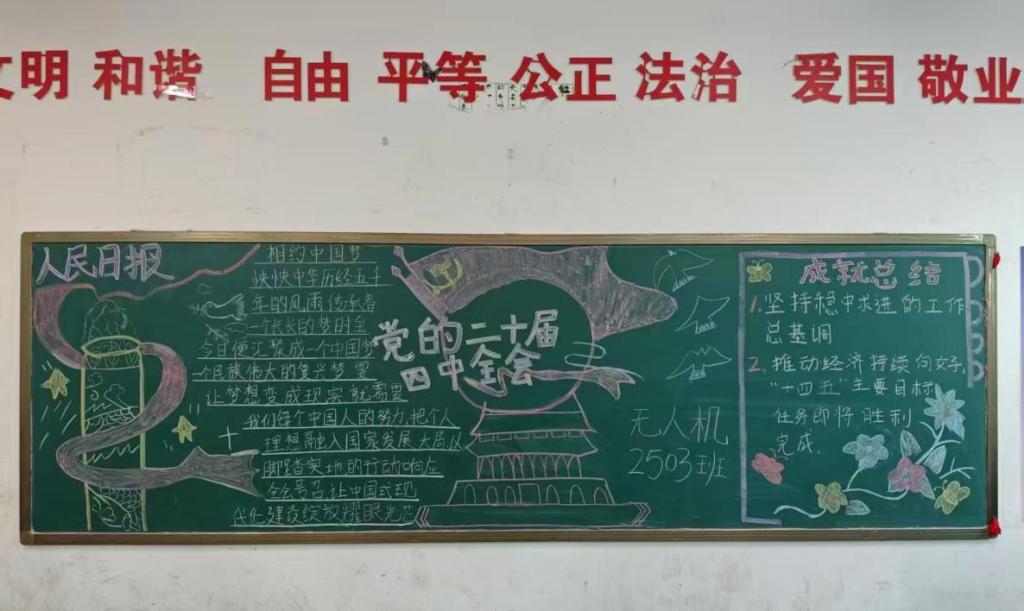 文明 和谐 自由 平等 公正 法治 爱国 敬业
人民日报
相约中国梦
怏怏中华历经五千
年的风雨传承着
一个长长的梦时至
今日便汇聚成一个中国梦
一个民族伟大的复兴梦 要
让梦想变成现实就需要
我们每个中国人的努力把个人
理想融入国家发展大局以
脚踏实地的行动响应
全会号召让中国式现
代化建设绽放耀眼光芒
党的二十届
四中全会
无人机
2503班
成就总结
1.坚持稳中求进的工作
总基调
2.推动经济持续向好,
“十四五”主要目标
任务即将胜利
完成.